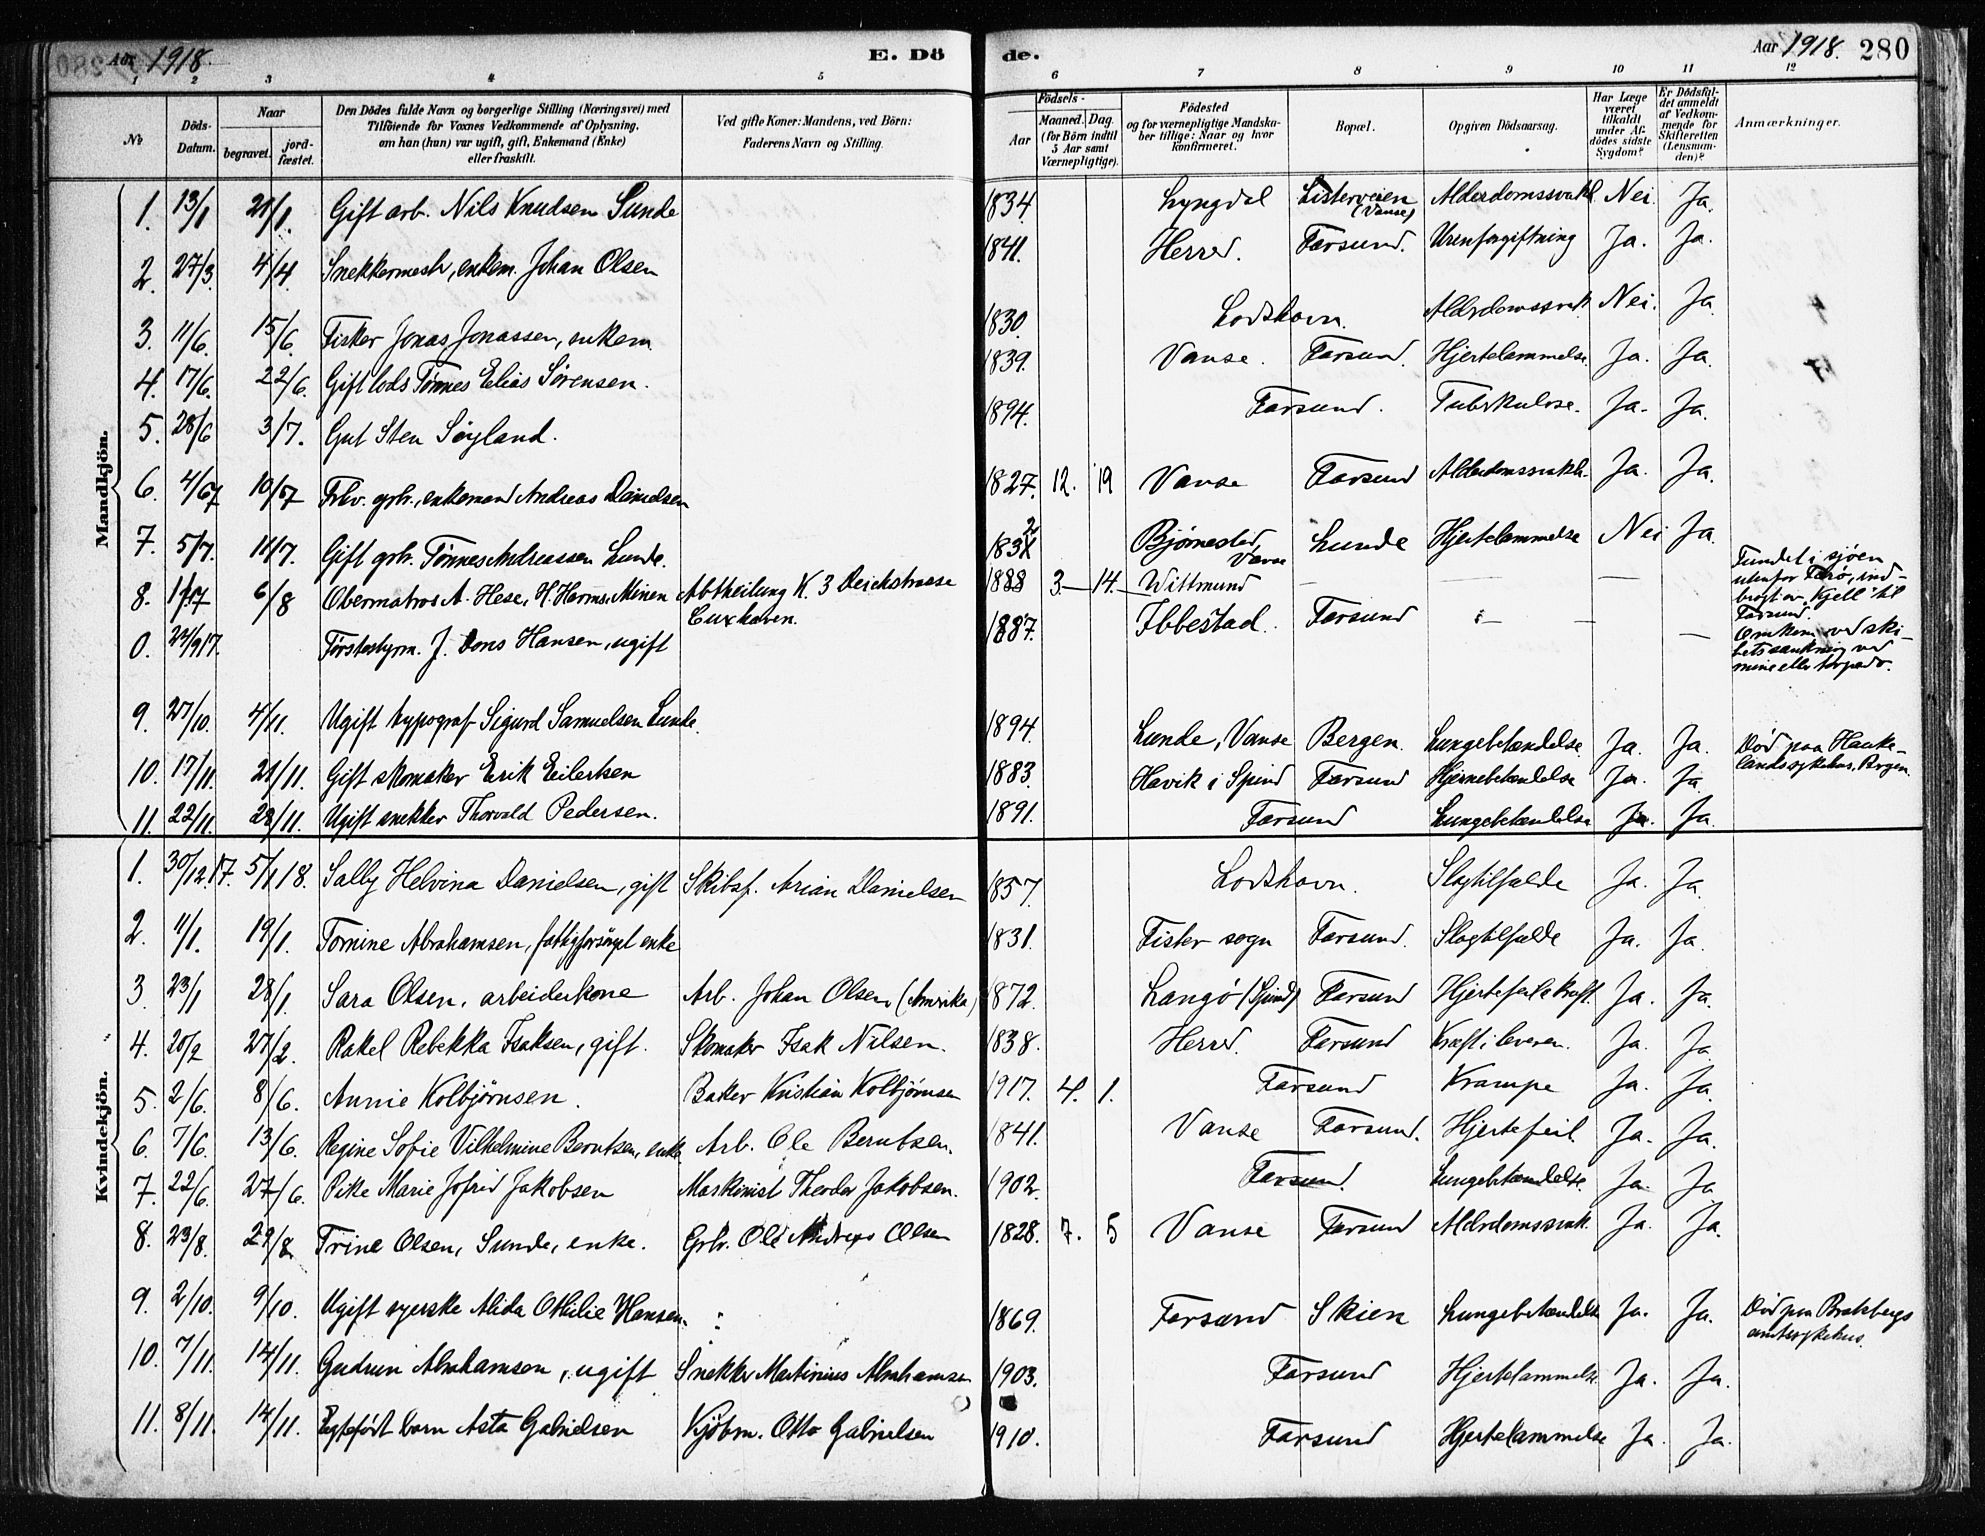 Aar 1918. E. Dö de. Aar 1918. 280
1 2 3 4 5 6 7 8 9 10 11 12
No
Döds-Datum.
Naar
begravet. jordfæstet.
Den Dödes fulde Navn og borgerlige Stilling (Næringsvei) med
Tilföiende for Voxnes Vedkommende af Oplysning,
om han (hun) var ugift, gift, Enkemand (Enke)
eller fraskilt.
Ved gifte Koner: Mandens, ved Börn:
Faderens Navn og Stilling.
Födsels-
Aar Maaned. Dag.
(for Börn indtil 5 Aar samt Værnepligtige).
Födested
og for værnepligtige Mandskaber tillige: Naar og hvor konfirmeret.
Bopæl.
Opgiven Dödsaarsag.
Har Læge været tilkaldt under Afdödes sidste Sygdom?
Er Dödsfaldet anmeldt af Vedkommende for Skifteretten (Lensmanden)?
Anmærkninger.
Mandkjön.
1. 13/1 21/1. Gift arb. Nils Knudsen Sunde 1834. Lyngdal Listerveien (Vanse) Alderdomssvakh. Nei. Ja.
2. 27/3. 4/4. Snekkermestr, enkem. Johan Olsen 1841. Herred. Farsund. Urinforgiftning Ja. Ja.
3. 11/6. 15/6. Fisker Jonas Jonassen, enkem. 1830. Loshavn. Alderdomssvak. Nei. Ja
4. 17/6. 22/6. Gift lods Tønnes Elias Sørensen. 1839. Vanse. Farsund. Hjertelammelse. Ja. Ja.
5. 28/6 3/7. Gut Sten Søyland. 1894. Farsund. Tuberkulose. Ja. Ja.
6. 4/7 10/7 Fhv. grh., enkemand Andreas Danielsen 1827. 12. 19 Vanse Farsund Alderdomssvakh. Ja. Ja.
7. 5/7. 11/7. Gift grh. Tønnes Andreassen Lunde. 1832 Bjørnestad, Vanse Lunde Hjertelammelse Nei Ja.
8. 6/8 Obermatros A. Hese, H. Harms, Minen Abtheilung K. 3 Deichstrasse Cuxhaven. 1888 3. 14. Wittmund Fundet i sjøen utenfor Farø, indbragt av "Kjell" til Farsund.
0. 22/9 17. Førstestyrm. J. Dons Hansen, ugift 1887. Ibbestad. Farsund Omkom ved skibets sænkning ved mine eller torpedo.
9. 27/10. 4/11. Ugift typograf Sigurd Samuelsen Lunde. 1894. Lunde, Vanse Bergen. Lungebetændelse Ja. Ja. Død paa Haukelands sykehus, Bergen.
10. 17/11. 21/11. Gift skomaker Erik Eilertsen 1883. Havik i Spind Farsund Hjernebetændelse Ja. Ja
11. 22/11. 28/11. Ugift snekker Thorvald Pedersen. 1891. Farsund Lungebetændelse Ja. Ja.
Kvindekjön.
1. 30/12.17. 5/1 18. Sally Helvina Danielsen, gift Skibsf. Arian Danielsen 1857. Loshavn. Slagtilfælde Ja. Ja.
2. 11/1. 19/1. Tomine Abrahamsen, fattigforsørget enke 1831. Fister sogn Farsund. Slagtilfælde Ja. Ja.
3. 23/1 28/1. Sara Olsen, arbeiderkone Arb. Johan Olsen (Amerika) 1872. Langø (Spind) Farsund Hjertefeil & kræft. Ja. Ja.
4. 20/2 27/2. Rakel Rebekka Isaksen, gift. Skomaker Isak Nilsen. 1838. Herred. Farsund Kræft i leveren. Ja. Ja.
5. 2/6. 8/6. Annie Kolbjørnsen. Baker Kristian Kolbjørnsen 1917. 4. 1. Farsund Krampe Ja. Ja.
6. 7/6. 13/6. Regine Sofie Vilhelmine Berntsen, enke. Arb. Ole Berntsen. 1841. Vanse Farsund. Hjertefeil. Ja. Ja.
7. 22/6. 27/6. Pike Marie Jofrid Jakobsen Maskinist Theodor Jakobsen. 1902. Farsund. Lungebetændelse. Ja. Ja
8. 23/8. 29/8. Trine Olsen, Sunde, enke. Grh. Ole Andreas Olsen 1828. 7. 5 Vanse Farsund Alderdomssvak. Ja. Ja.
9. 2/10. 9/10. Ugift syerske Alida Othilie Hansen. 1869. Farsund Skien Lungebetændelse Ja. Ja. Død paa Bratsbergs amtssykehus.
10. 7/11. 14/11. Gudrun Abrahamsen, ugift Snekker Martinius Abrahamsen 1903. Farsund Hjertelammelse Ja. Ja.
11. 8/11. 14/11. Egtefødt barn Asta Gabrielsen Kjøbm. Otto Gabrielsen 1910. Farsund Hjertelammelse Ja. Ja.